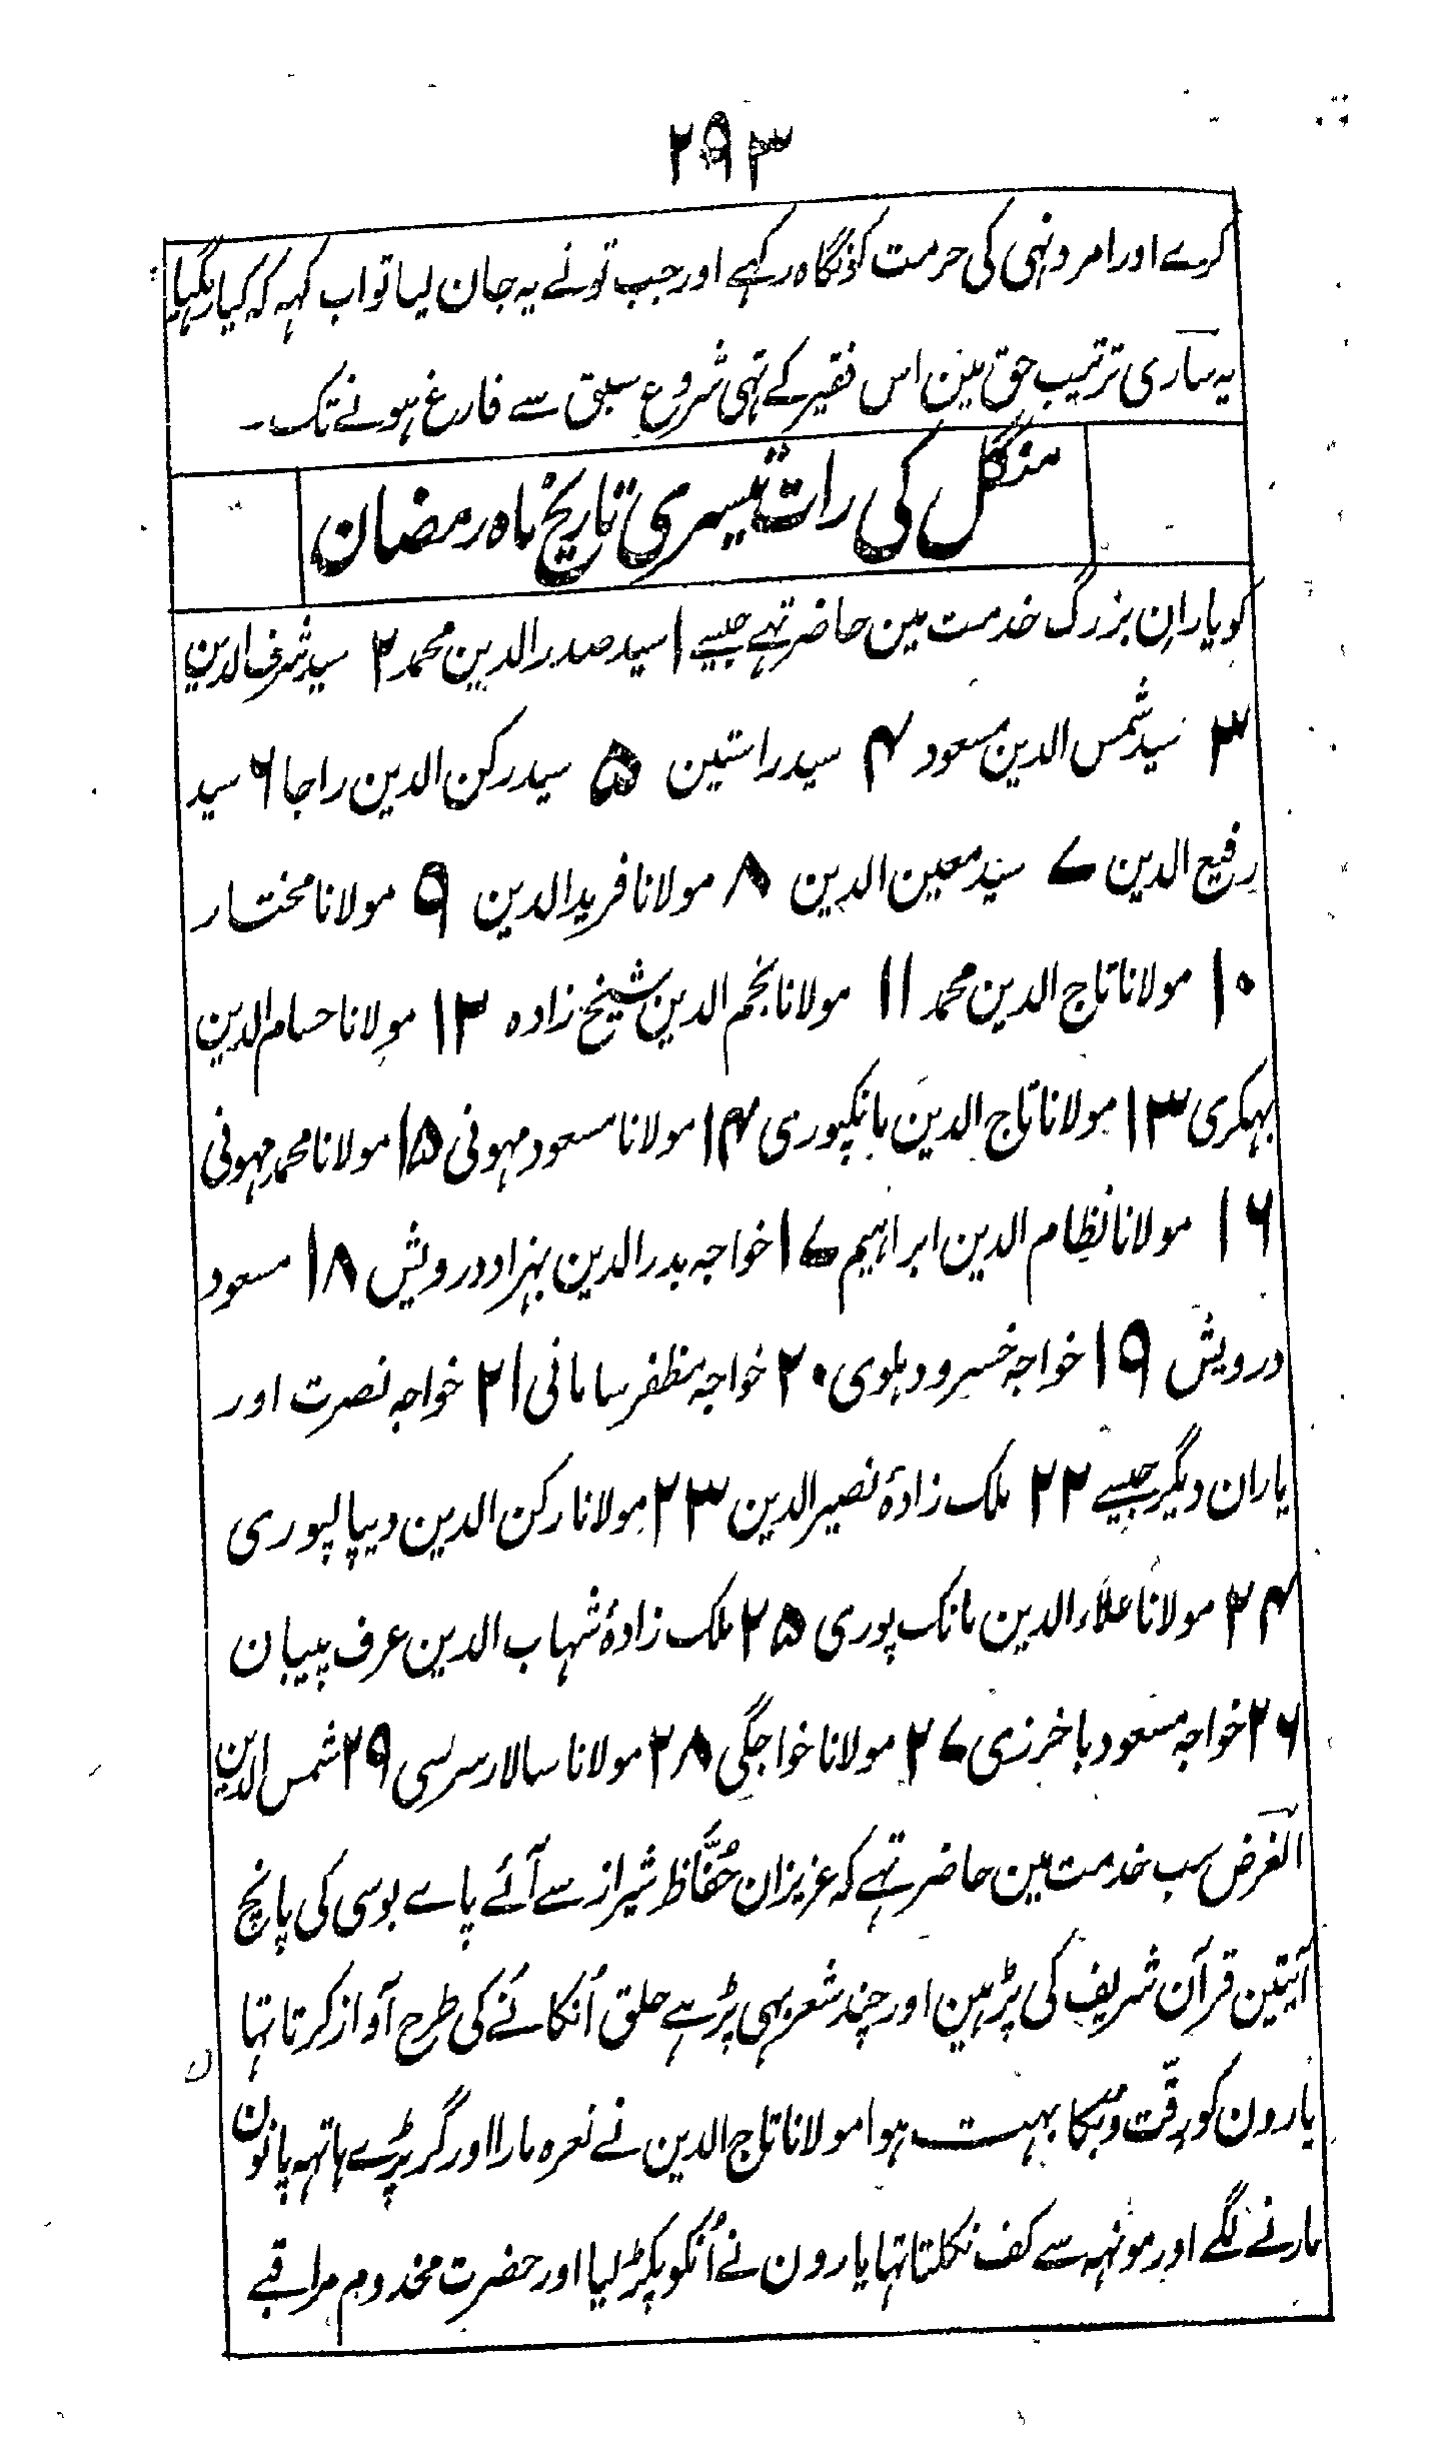 ۲۹۳
کرے اور امر و نہی کی حرمت کو نگاہ رکہے اور جب تونے یہ جان لیا تو اب کہہ کہ کیا رہگیا
یہ ساری ترتیب حق مین اس فقیر کے تہی شروع سبق سے فارغ ہونے تک۔
منگل کی رات تیسری تاریخ ماہ رمضان
کو یاران بزرگ خدمت مین حاضر تہے جیسے ۱ سید صدر الدین محمد ۲ سید شرف الدین
۳ سید شمس الدین مسعود ۴ سید راستین ۵ سید رکن الدین راجا ۶ سید
رفیع الدین ۷ سید معین الدین ۸ مولانا فرید الدین ۹ مولانا مختار
۱۰ مولانا تاج الدین محمد ۱۱ مولانا نجم الدین شیخ زادہ ۱۲ مولانا حسام الدین
بہکری ۱۳ مولانا تاج الدین بانکپوری ۱۴ مولانا مسعود مہونی ۱۵ مولانا محمد مہونی
۱۶ مولانا نظام الدین ابراہیم ۱۷ خواجہ بدر الدین بہزاد درویش ۱۸ مسعود
درویش ۱۹ خواجہ خسرو دہلوی ۲۰ خواجہ مظفر سامانی ۲۱ خواجہ نصرت اور
یاران دیگر جیسے ۲۲ ملک زادۂ نصیر الدین ۲۳ مولانا رکن الدین دیپالپوری
۲۴ مولانا علاء الدین مانک پوری ۲۵ ملک زادۂ شہاب الدین عرف پیبان
۲۶ خواجہ مسعود باخرزی ۲۷ مولانا خواجگی ۲۸ مولانا سالار سرسی ۲۹ شمس الدین
الغرض سب خدمت مین حاضر تہے کہ عزیزان حُفّاظ شیراز سے آئے پاے بوسی کی پانچ
آیتین قرآن شریف کی پڑہین اور چند شعر بہی پڑہے حلق اُنکا نَے کی طرح آواز کرتا تہا
یارون کو رقّت و بُکا بہت ہوا مولانا تاج الدین نے نعرہ مارا اور گر پڑے ہاتہہ پانون
مارنے لگے اور مونہہ سے کف نکلتا تہا یارون نے اُنکو پکڑ لیا اور حضرت مخدوم مراقبے